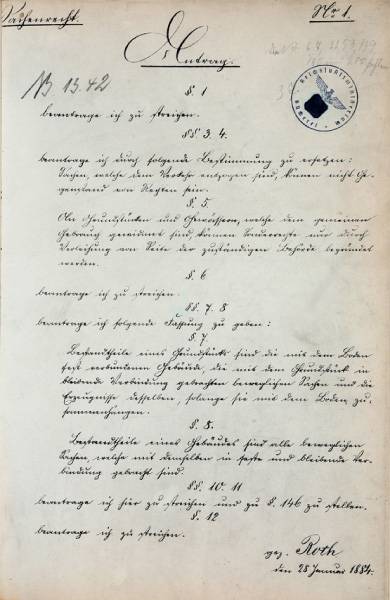 Sachenrecht.
No 1.
Antrag.
N 13.42
§. 1
beantrage ich zu streichen.
§§ 3. 4.
beantrage ich durch folgende Bestimmung zu ersetzen:
Sachen, welche dem Verkehr entzogen sind, können nicht Ge-
genstand von Rechten sein.
§. 5
An Grundstücken und Gewässern, welche dem gemeinen
Gebrauch gewidmet sind, können Sonderrechte nur durch
Verleihung von Seite der zuständigen Behörde begründet
werden.
§. 6
beantrage ich zu streichen.
§§. 7. 8
beantrage ich folgende Fassung zu geben:
§. 7.
Bestandtheile eines Grundstücks sind die mit dem Boden
fest verbundenen Gebäude, die mit dem Grundstück in
bleibende Verbindung gebrachten beweglichen Sachen und die
Erzeugnisse desselben, solange sie mit dem Boden zu-
sammenhängen.
§. 8.
Bestandtheile eines Gebäudes sind alle beweglichen
Sachen welche mit demselben in feste und bleibende Ver-
bindung gebracht sind.
§§. 10. 11
beantrage ich hier zu streichen und zu §. 146 zu stellen.
§. 12
beantrage ich zu streichen.
gez. Roth
den 28 Januar 1884.
Reichsjustizministerium
Bücherei